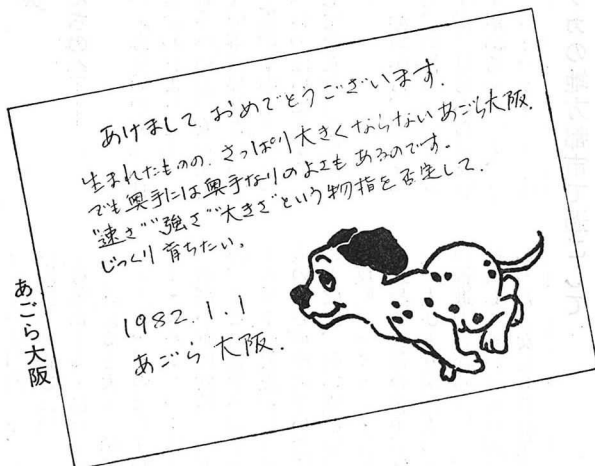 あけまして おめでとうございます.
生まれたものの、さっぱり大きくならない あごら大阪.
でも奥手には奥手なりのよさも あるのです。
"速さ" "強さ" "大きさ" という物指を否定して、
じっくり 育ちたい。
1982.1.1
あごら 大阪.
あごら大阪